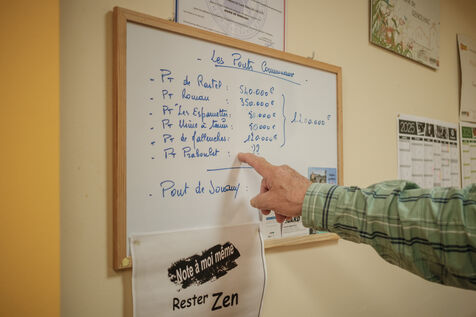 Les Ponts Communaux
- Pt de Rastel : 540.000€
- Pt Romain : 350.000€
- Pt "Les Esparnettes : 80.000€
- Pt Usine à tanin : 80.000€
- Pt de : 120.000€
- Pt Praboulet : ??
1.200.000€
- Pont de Joyany :
Note à moi même
Rester Zen
2025